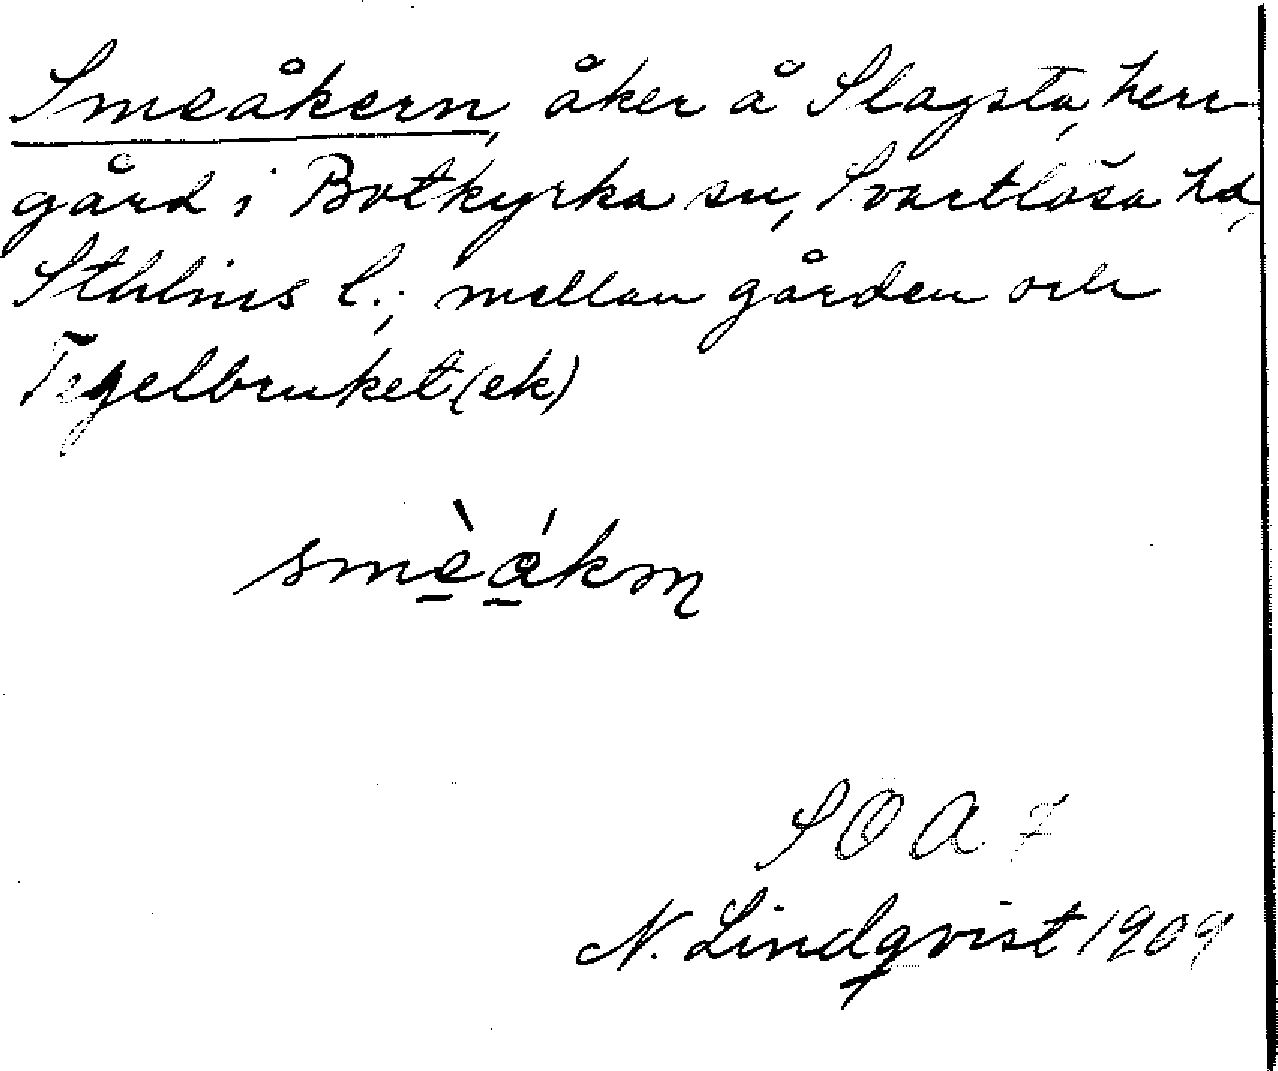 Smeåkern, åker å Slagsta, herr
gård i Botkyrka sn, Svartlösa hd,
Sthlms l.; mellan gården och
Tegelbruket (ek)
SOA 7
N. Lindqvist 1909